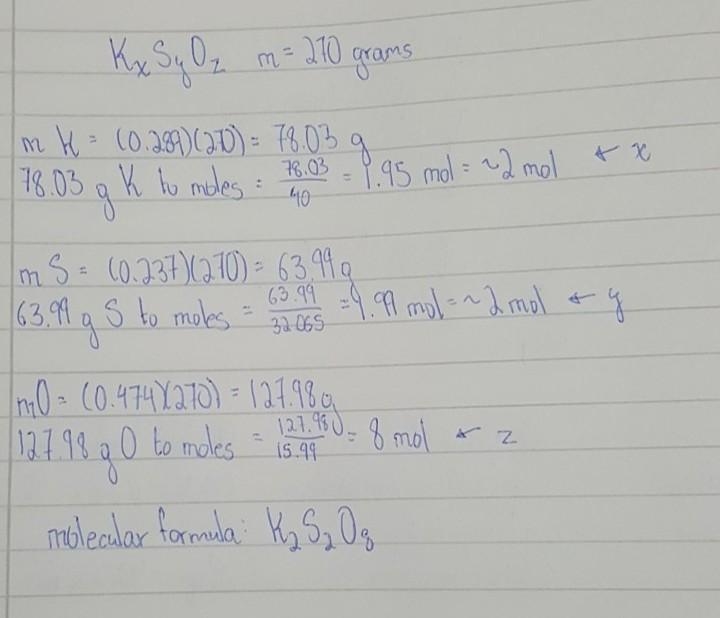 KxSyOz m = 270 grams
m K = (0.289)(270) = 78.03 g
78.03 g K to moles = 78.03/40 = 1.95 mol = ~2 mol ← x
m S = (0.237)(270) = 63.99 g
63.99 g S to moles = 63.99/32.065 = 1.99 mol = ~2 mol ← y
m O = (0.474)(270) = 127.98 g
127.98 g O to moles = 127.98/15.99 = 8 mol ← z
molecular formula: K₂S₂O₈